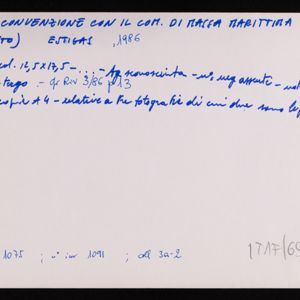 CONVENZIONE CON IL COM. DI MASSA MARITTIMA
TO) ESTIGAS , 1986
col. 12,5x17,5 - ... - Ag. sconosciuta - n° neg assente -
tergo. - Riv 3/86 p 13
copie A4 - relative a tre fotografie di cui due sono
1075 ; n° inv 1091 ; all 3a-2
1T17/69